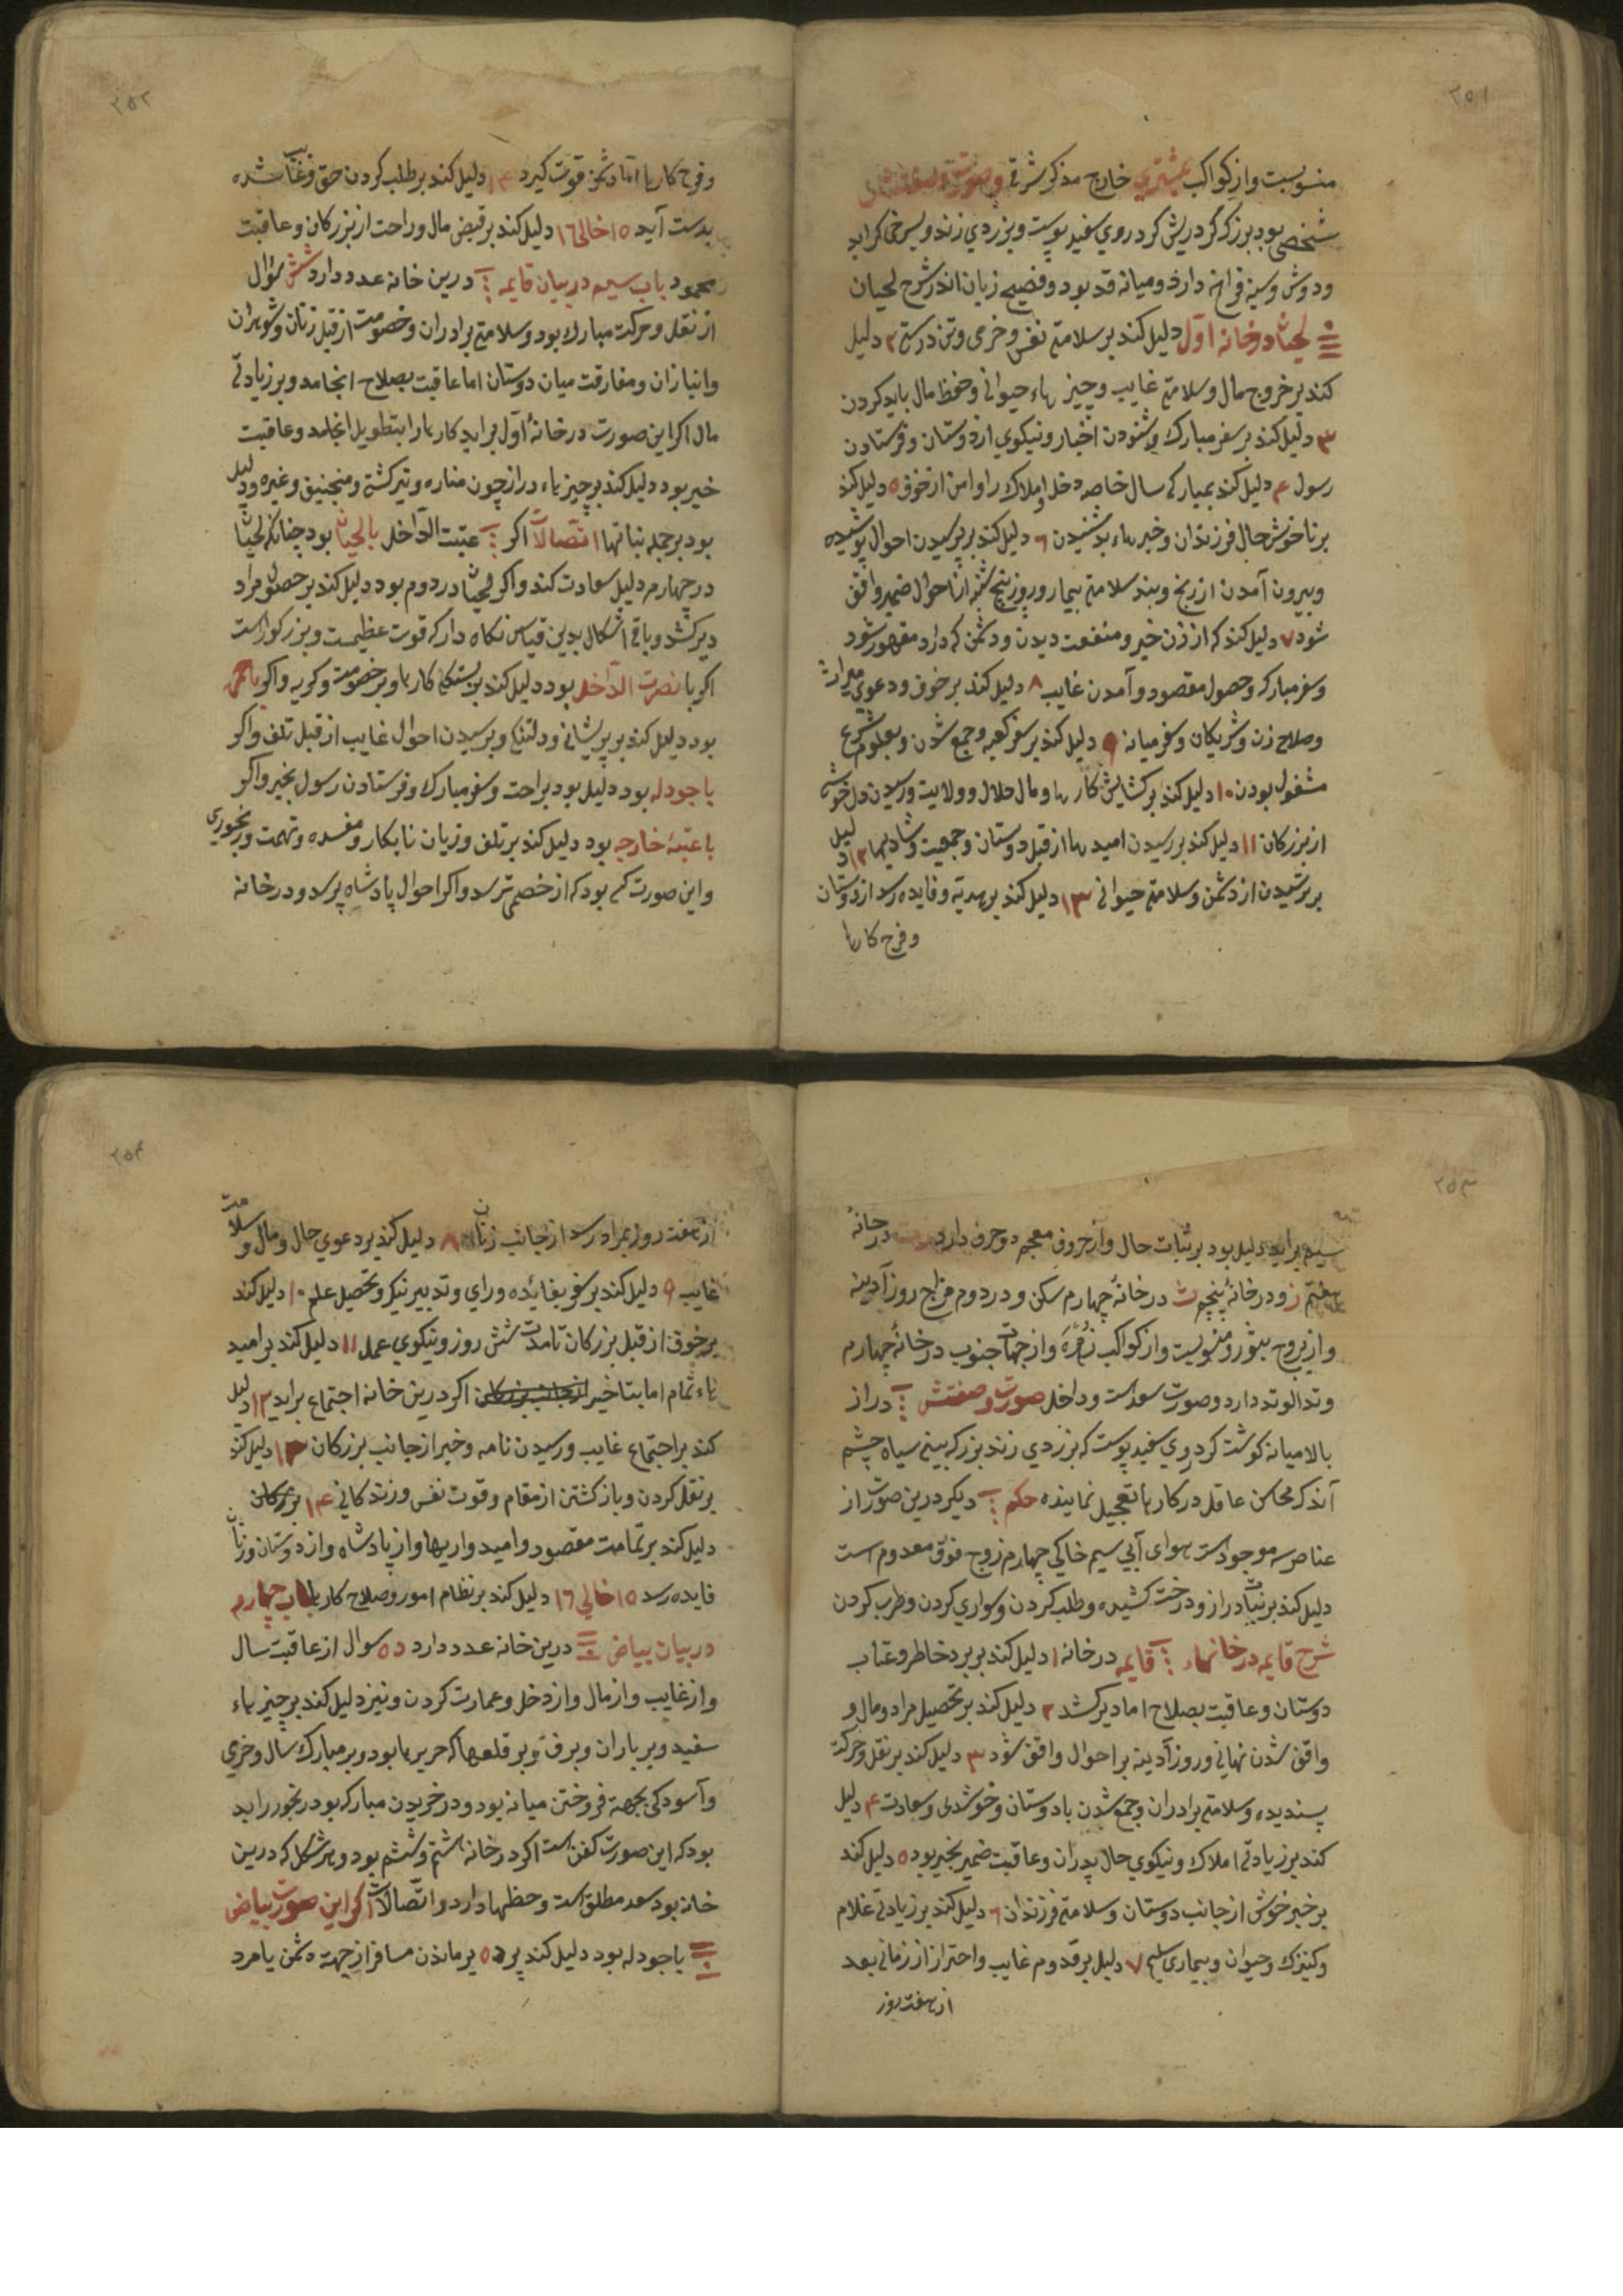 ۲۵۱
منسوبست واز کواکب بمشتری خارج مذکر شرقی وصورت وصفتش
شخصی بود بزرک کردریش کرد روی سفید پوست وبزردی زند وبسرخی کراید
ودوش وسینه فراخ دارد ومیانه قد بود وفصیح زبان اندر شرح لحیان
لحیان در خانه اول دلیل کند بر سلامتی نفس وخرمی وتن درستی ۲ دلیل
کند بر خروج مال وسلامتی غایب وچیزهاء حیوانی وحفظ مال باید کردن
۳ دلیل کند بر سفر مبارک وشنودن اخبار ونیکوی از دوستان وفرستادن
رسول ۴ دلیل کند بمبارکی سال خاصه دخل واملاک را وامن از خوف ۵ دلیل کند
بر ناخوش حال فرزندان وخبرهاء بد شنیدن ۶ دلیل کند بر پرسیدن احوال پوشیده
وبیرون آمدن از رنج وبند سلامتی بیمار وروز پنج شنبه از احوال ضمیر واقف
شود ۷ دلیل کند که از زن خیر ومنفعت دیدن ودشمن که دارد مقهور شود
وسفر مبارک وحصول مقصود وآمدن غایب ۸ دلیل کند بر خوف ودعوی میراث
وصلاح زن وشریکان وسفر میانه ۹ دلیل کند بر سفر کعبه وجمع شدن وبعلوم شرع
مشغول بودن ۱۰ دلیل کند بر کشایش کارها ومال حلال وولایت ورسیدن دل خوشی
از بزرکان ۱۱ دلیل کند بر رسیدن امیدها از قبل دوستان وجمعیت وشادیها ۱۲ دلیل
بر ترسیدن از دشمن وسلامتی حیوانی ۱۳ دلیل کند بر هدیه وفایده رسد از دوستان
وفرح کارها
۲۵۲
وفرح کارها اما دشمن قوت کیرد ۱۴ دلیل کند بر طلب کردن حق وغایب شده
بدست آید ۱۵ خالی ۱۶ دلیل کند بر قبض مال وراحت از بزرکان وعاقبت
محمود باب سیم در بیان قایمه درین خانه عدد دارد شش سؤال
از نقل وحرکت مبارک بود وسلامتی برادران وخصومت از قبل زنان وشوهران
وانبازان ومفارقت میان دوستان اما عاقبت بصلاح انجامد وبر زیادتی
مال اکر این صورت در خانهٔ اول براید کارها را بتطویل انجامد وعاقبت
خیر بود دلیل کند بر چیزهاء دراز چون مناره وتیر کشتی ومنجنیق وغیره ودلیل
بود بر جمله نباتها اتصالات اکر عتبت الداخل بالحیان بود چنانکه لحیان
در چهارم دلیل سعادت کند واکر لحیان در دوم بود دلیل کند بر حصول مراد
دیر کشد وباقی اشکال بدین قیاس نکاه دار که قوت عظیمست وبزرکوار است
اکر با نصرت الداخل بود دلیل کند بر بستکی کارها وبر خصومت وکریه واکر با حمره
بود دلیل کند بر پریشانی ودلتنکی وپرسیدن احوال غایب از قبل تلف واکر
با جودله بود دلیل بود براحت وسفر مبارک وفرستادن رسول بخیر واکر
با عتبهٔ خارجه بود دلیل کند بر تلف وزیان نابکار ومفسده وتهمت ورنجوری
واین صورت کسی بود که از خصمی ترسد واکر احوال پادشاه پرسد ودر خانه
۲۵۳
سیم براید دلیل بود بر ثبات حال واز حروف معجم دو حرف دارد در خانهٔ
هفتم ز ودر خانهٔ پنجم ث در خانهٔ چهارم سکن ودر دوم فراح روز آدینه
واز بروج بثور منسوبست واز کواکب زهره واز جهات جنوب در خانهٔ چهارم
وتد الوتد دارد وصورت سعد است وداخل صورت وصفتش دراز
بالا میانه کوشت کرد روی سفید پوست که بزردی زند بزرک بینی سیاه چشم
اندک محاسن عاقل در کارها تعجیل نماینده حکم دیکر درین صورت از
عناصر سه موجود است هوای آبی سیم خاکی چهارم زوج فوق معدوم است
دلیل کند بر نبات دراز ودرخت کشیده وطلب کردن وسواری کردن وطرب کردن
شرح قایمه در خانهاء قایمه در خانه ۱ دلیل کند بر برد خاطر وعتاب
دوستان وعاقبت بصلاح اما دیر کشد ۲ دلیل کند بر تحصیل مراد ومال و
واقف شدن نهانی وروز آدینه بر احوال واقف شود ۳ دلیل کند بر نقل وحرکت
پسندیده وسلامتی برادران وجمع شدن با دوستان وخوشدلی وسعادت ۴ دلیل
کند بر زیادتی املاک ونیکوی حال پدران وعاقبت ضمیر بخیر بود ۵ دلیل کند
بر خبر خوش از جانب دوستان وسلامتی فرزندان ۶ دلیل کند بر زیادتی غلام
وکنیزک وحیوان وبیماری سلیم ۷ دلیل بر قدوم غایب واحتراز از زمانی بعد
از هفت روز
۲۵۴
از هفت روز بمراد رسد از جانب زنان ۸ دلیل کند بر دعوی حال ومال وسلامت
غایب ۹ دلیل کند بر سفر بفائده ورای وتدبیر نیک وتحصیل علم ۱۰ دلیل کند
بر خوف از قبل بزرکان تا مدت شش روز ونیکوی عمل ۱۱ دلیل کند بر امید
هاء تمام اما بتاخیر اکر درین خانه اجتماع براید ۱۲ دلیل
کند بر اجتماع غایب ورسیدن نامه وخبر از جانب بزرکان ۱۳ دلیل کند
بر نقل کردن وباز کشتن از مقام وقوت نفس وزندکانی ۱۴ بزرکان
دلیل کند بر تمامت مقصود وامیدواریها واز پادشاه واز دوستان وزنان
فایده رسد ۱۵ خالی ۱۶ دلیل کند بر نظام امور وصلاح کارها باب چهارم
در بیان بیاض درین خانه عدد دارد ده سوال از عاقبت سال
واز غایب واز مال واز دخل وعمارت کردن ونیز دلیل کند بر چیزهاء
سفید وبر باران وبرف وبر قلعها که حریرها بود وبر مبارک سال وخرمی
وآسودکی بجهة فروختن میانه بود ودر خریدن مبارک بود رنجور را بد
بود که این صورت کفن است اکر در خانه هشتم وششم بود وهر شکل که درین
خانه بود سعد مطلق است وحظها دارد واتصالات اکر این صورت بیاض
با جودله بود دلیل کند بر ماندن مسافر از جهة دشمن یا مرد